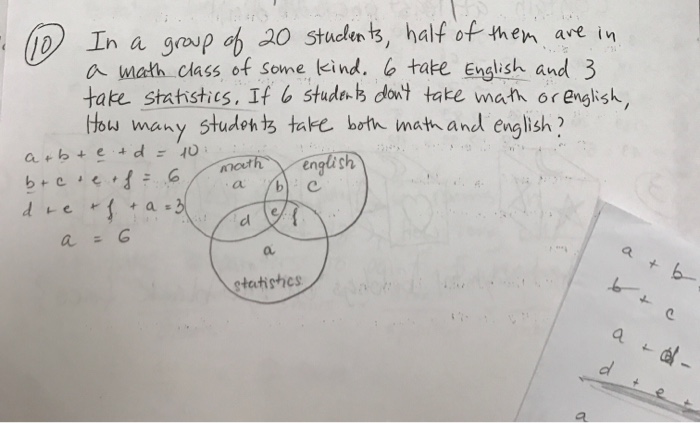 10 In a group of 20 students, half of them are in
a math class of some kind. 6 take English and 3
take statistics. If 6 students don't take math or english,
How many students take both math and english?
a + b + e + d = 10
b + c + e + f = 6
d + e + f + a = 3
a = 6
math
english
a
b
c
d
e
f
a
statistics
a + b
b + c
a + d -
d + e +
a